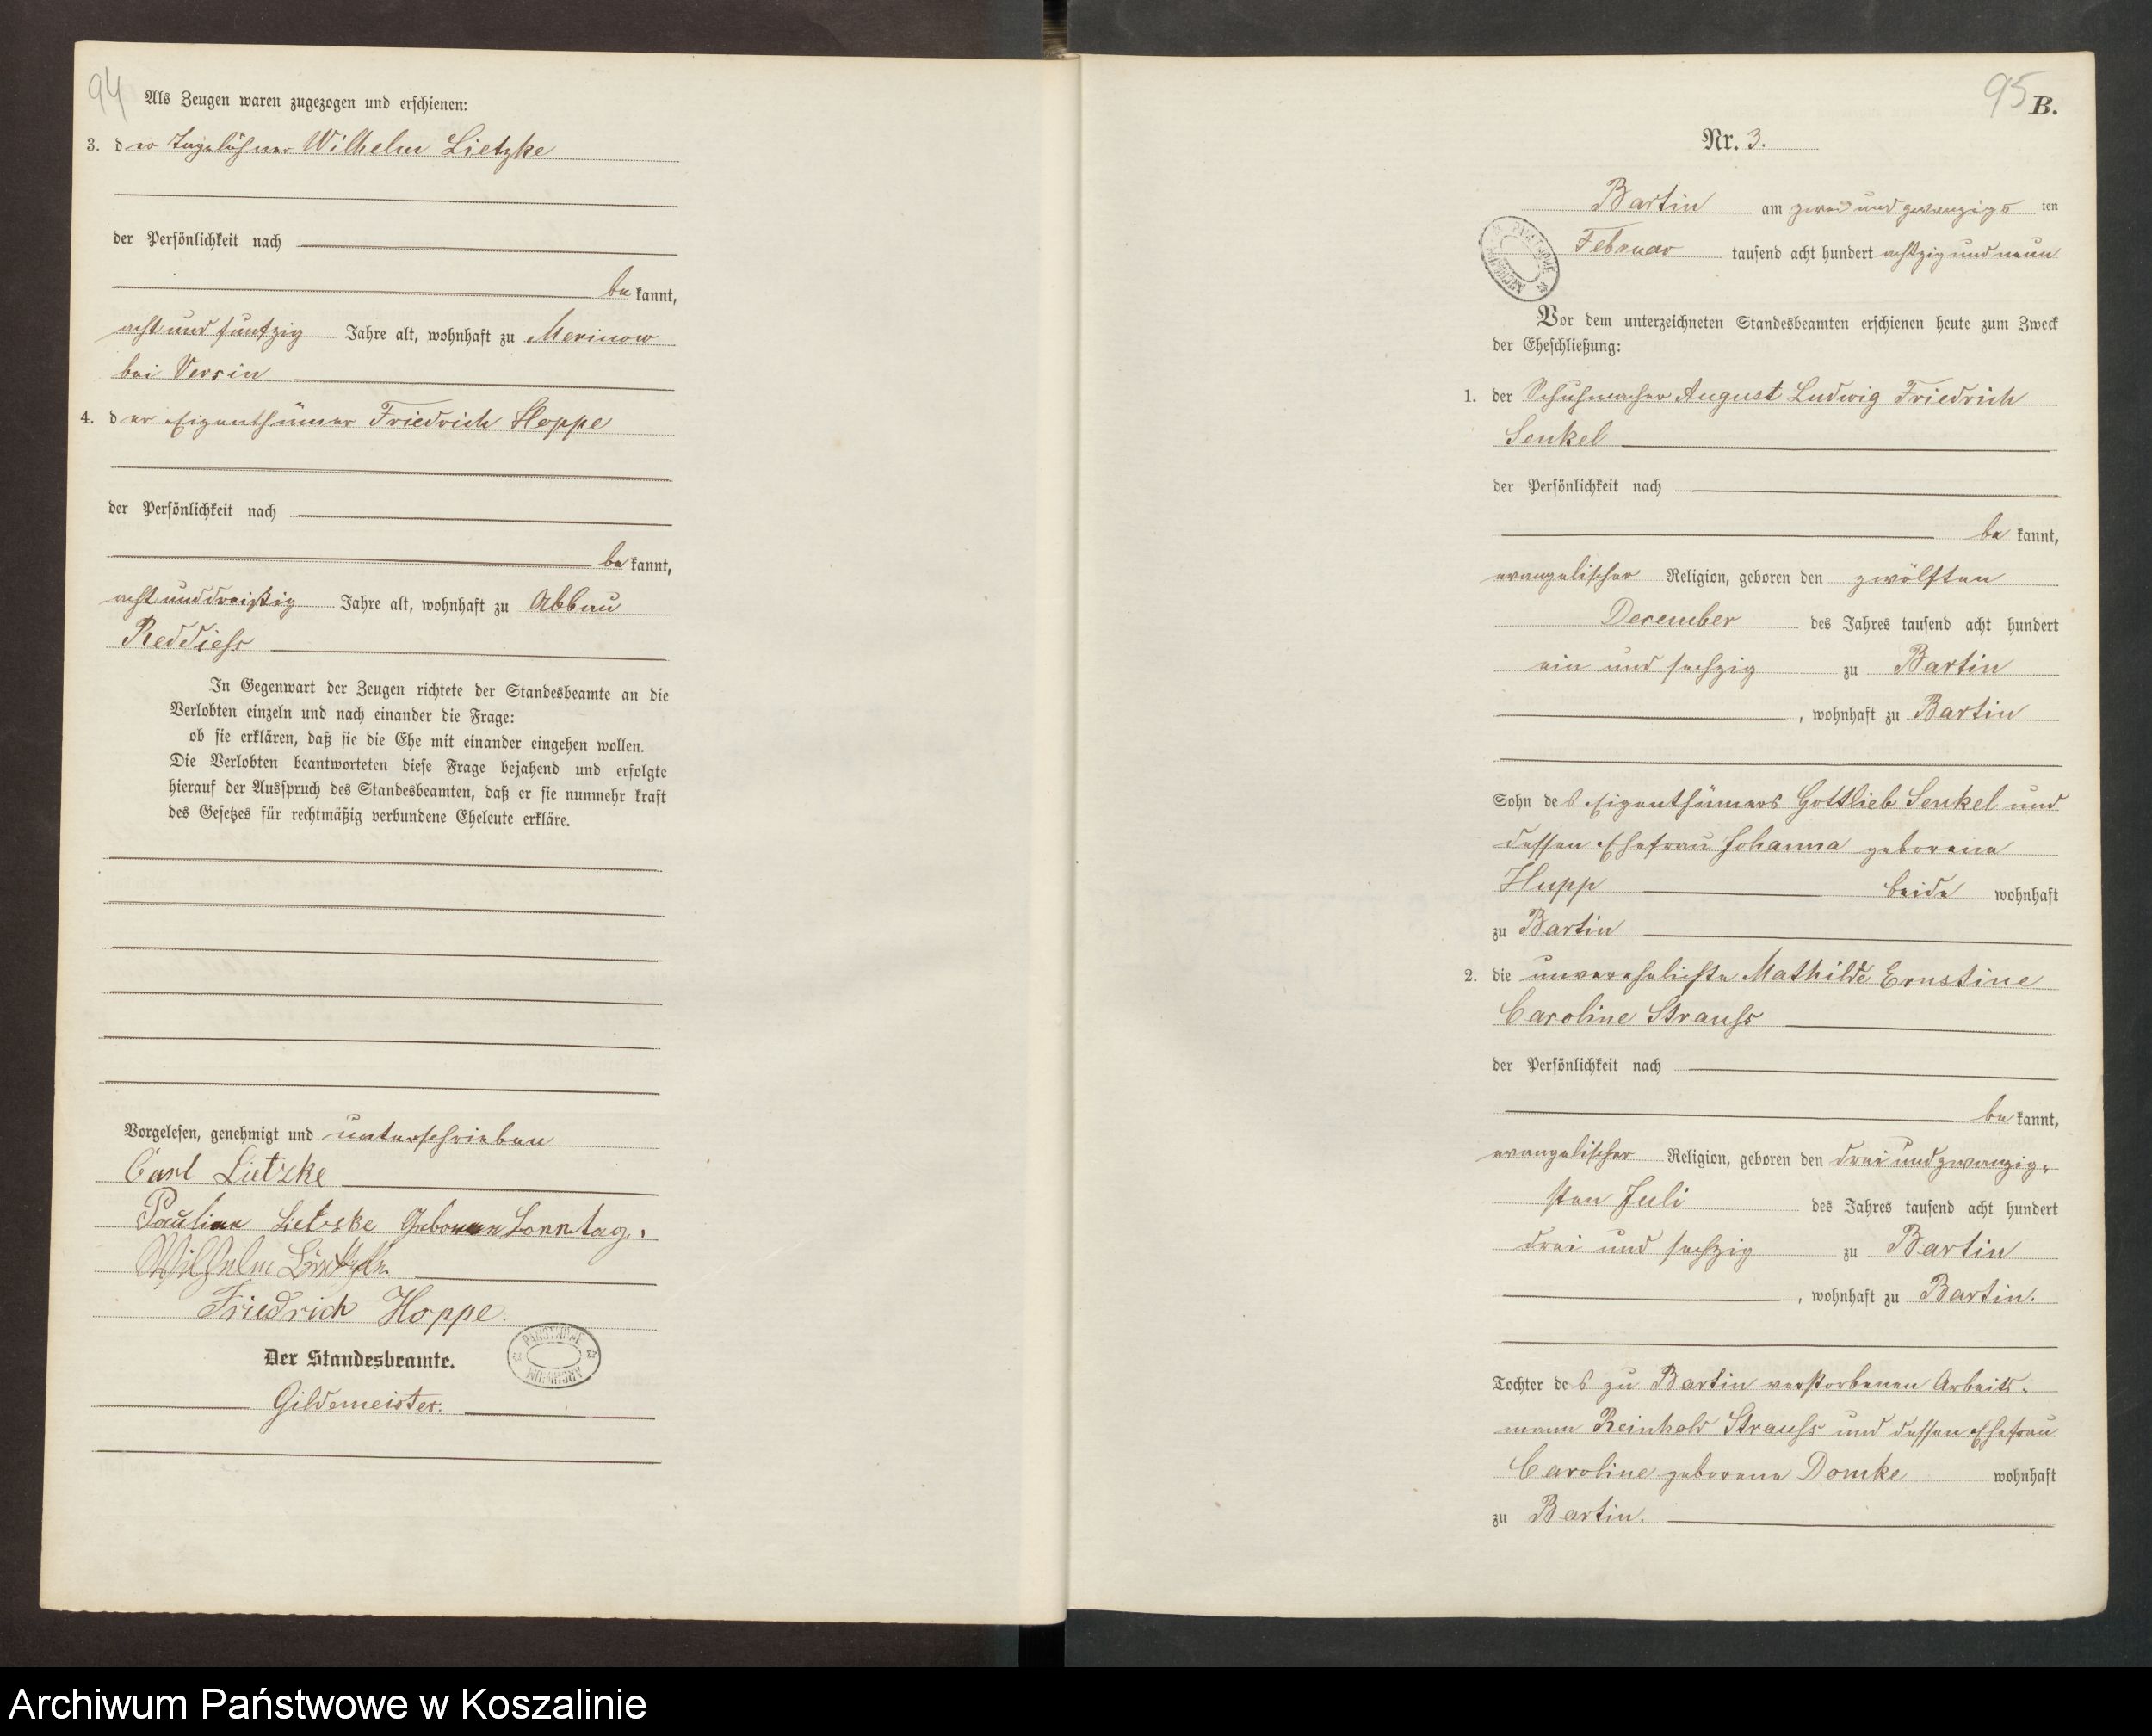 94
Als Zeugen waren zugezogen und erschienen:
3. der Tagelöhner Wilhelm Lietzke
der Persönlichkeit nach
be kannt,
acht und funfzig Jahre alt, wohnhaft zu Merinow
bei Versin
4. der Eigenthümer Friedrich Hoppe
der Persönlichkeit nach
be kannt,
acht und dreißig Jahre alt, wohnhaft zu Abbau
Reddiess
In Gegenwart der Zeugen richtete der Standesbeamte an die
Verlobten einzeln und nach einander die Frage:
ob sie erklären, daß sie die Ehe mit einander eingehen wollen.
Die Verlobten beantworteten diese Frage bejahend und erfolgte
hierauf der Ausspruch des Standesbeamten, daß er sie nunmehr kraft
des Gesetzes für rechtmäßig verbundene Eheleute erkläre.
Vorgelesen, genehmigt und unterschrieben
Carl Lietzke
Pauline Lietzke Geborene Sonntag.
Wilhelm Lietzke.
Friedrich Hoppe.
Der Standesbeamte.
PAŃSTWOWE ARCHIWUM
Gildemeister.
95
B.
Nr. 3.
Bartin am zwei und zwanzigs ten
Februar tausend acht hundert achtzig und neun
PAŃSTWOWE ARCHIWUM
Vor dem unterzeichneten Standesbeamten erschienen heute zum Zweck
der Eheschließung:
1. der Schuhmacher August Ludwig Friedrich
Senkel
der Persönlichkeit nach
be kannt,
evangelischer Religion, geboren den zwölften
December des Jahres tausend acht hundert
ein und sechzig zu Bartin
, wohnhaft zu Bartin
Sohn des Eigenthümers Gottlieb Senkel und
dessen Ehefrau Johanna geborene
Hupp beide wohnhaft
zu Bartin
2. die unverehelichte Mathilde Ernstine
Caroline Strauss
der Persönlichkeit nach
be kannt,
evangelischer Religion, geboren den drei und zwanzig-
sten Juli des Jahres tausend acht hundert
drei und sechzig zu Bartin
, wohnhaft zu Bartin.
Tochter des zu Bartin verstorbenen Arbeits-
mann Reinhold Strauss und dessen Ehefrau
Caroline geborene Domke wohnhaft
zu Bartin.
Archiwum Państwowe w Koszalinie